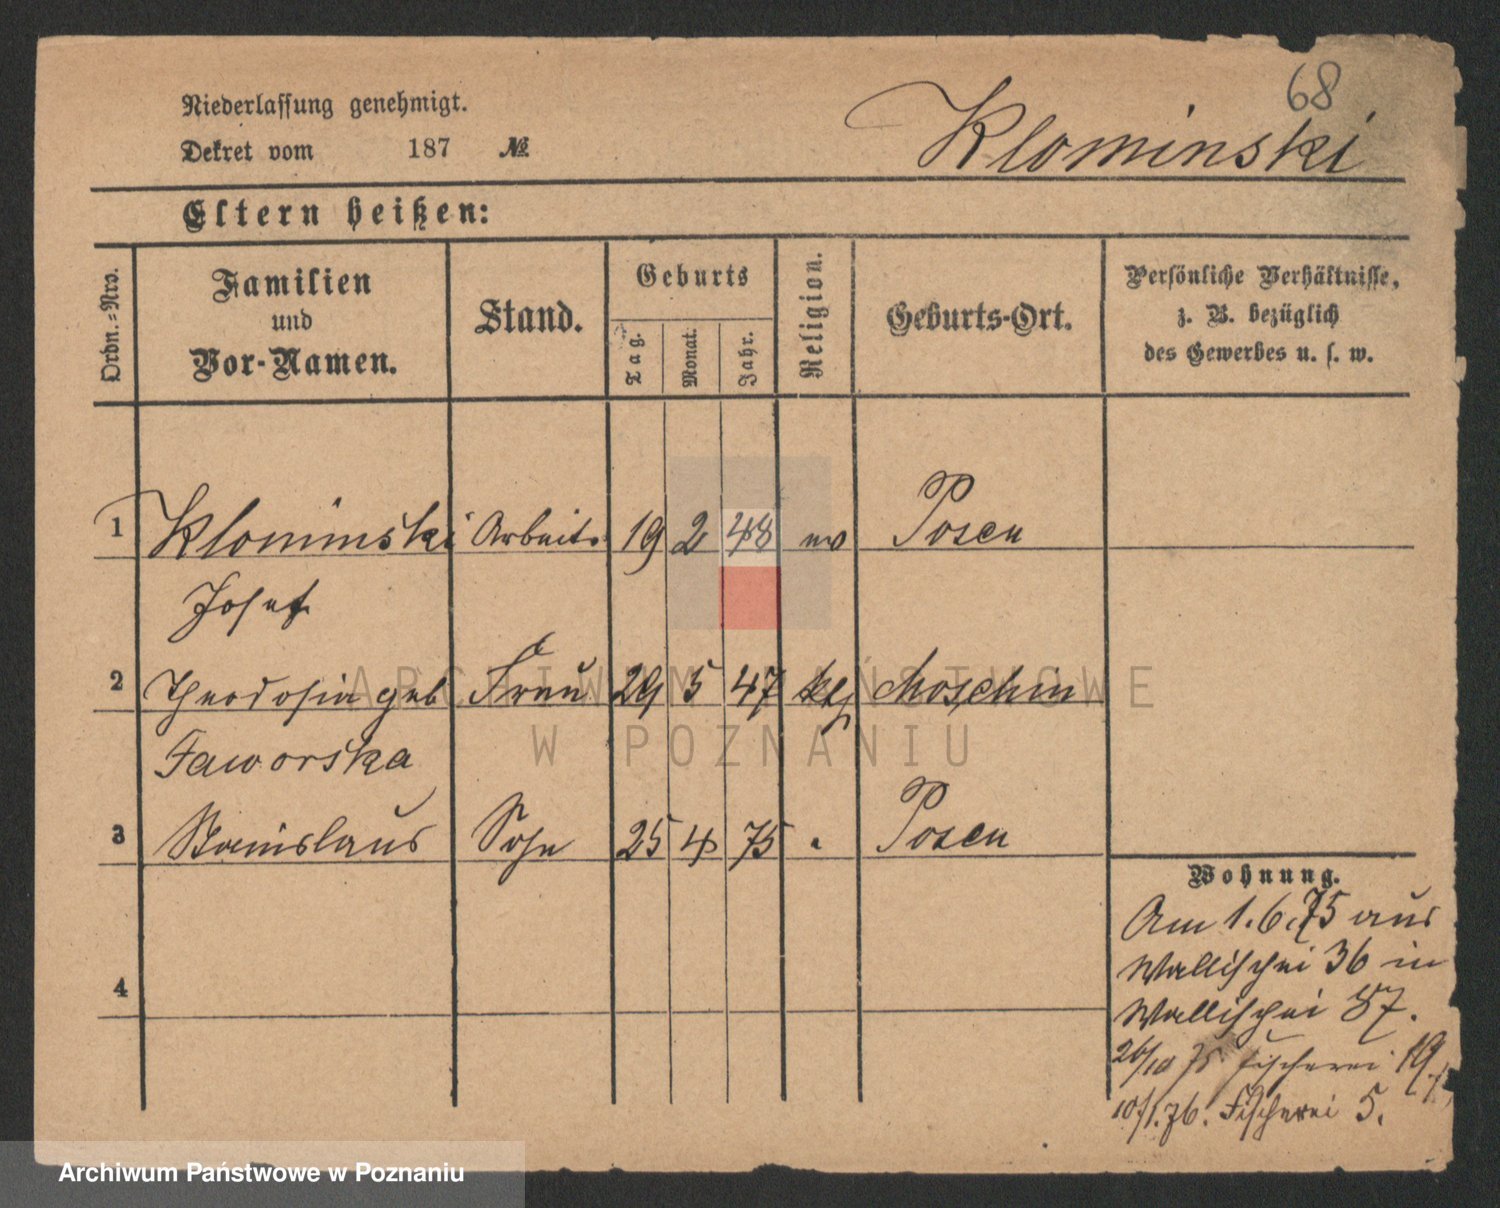 68
Niederlassung genehmigt.
Klominski
Dekret vom 187 №
Eltern heißen:
Ordn.-Nro.
Familien und Vor-Namen.
Stand.
Geburts
Tag.
Monat.
Jahr.
Religion.
Geburts-Ort.
Persönliche Verhältnisse,
z. B. bezüglich
des Gewerbes u. s. w.
1 Klominski Arbeit. 19 2 48 Posen
Josef
2 Theodosia geb Frau 29 5 47 ktl Moschin
Jaworska
3 Stanislaus Sohn 25 4 75 " Posen
4
Wohnung.
Am 1.6.75 aus
Wallischei 36 in
Wallischei 87.
26/10 75 Fischerei 19
10/1.76. Fischerei 5.
ARCHIWUM PAŃSTWOWE
W POZNANIU
Archiwum Państwowe w Poznaniu